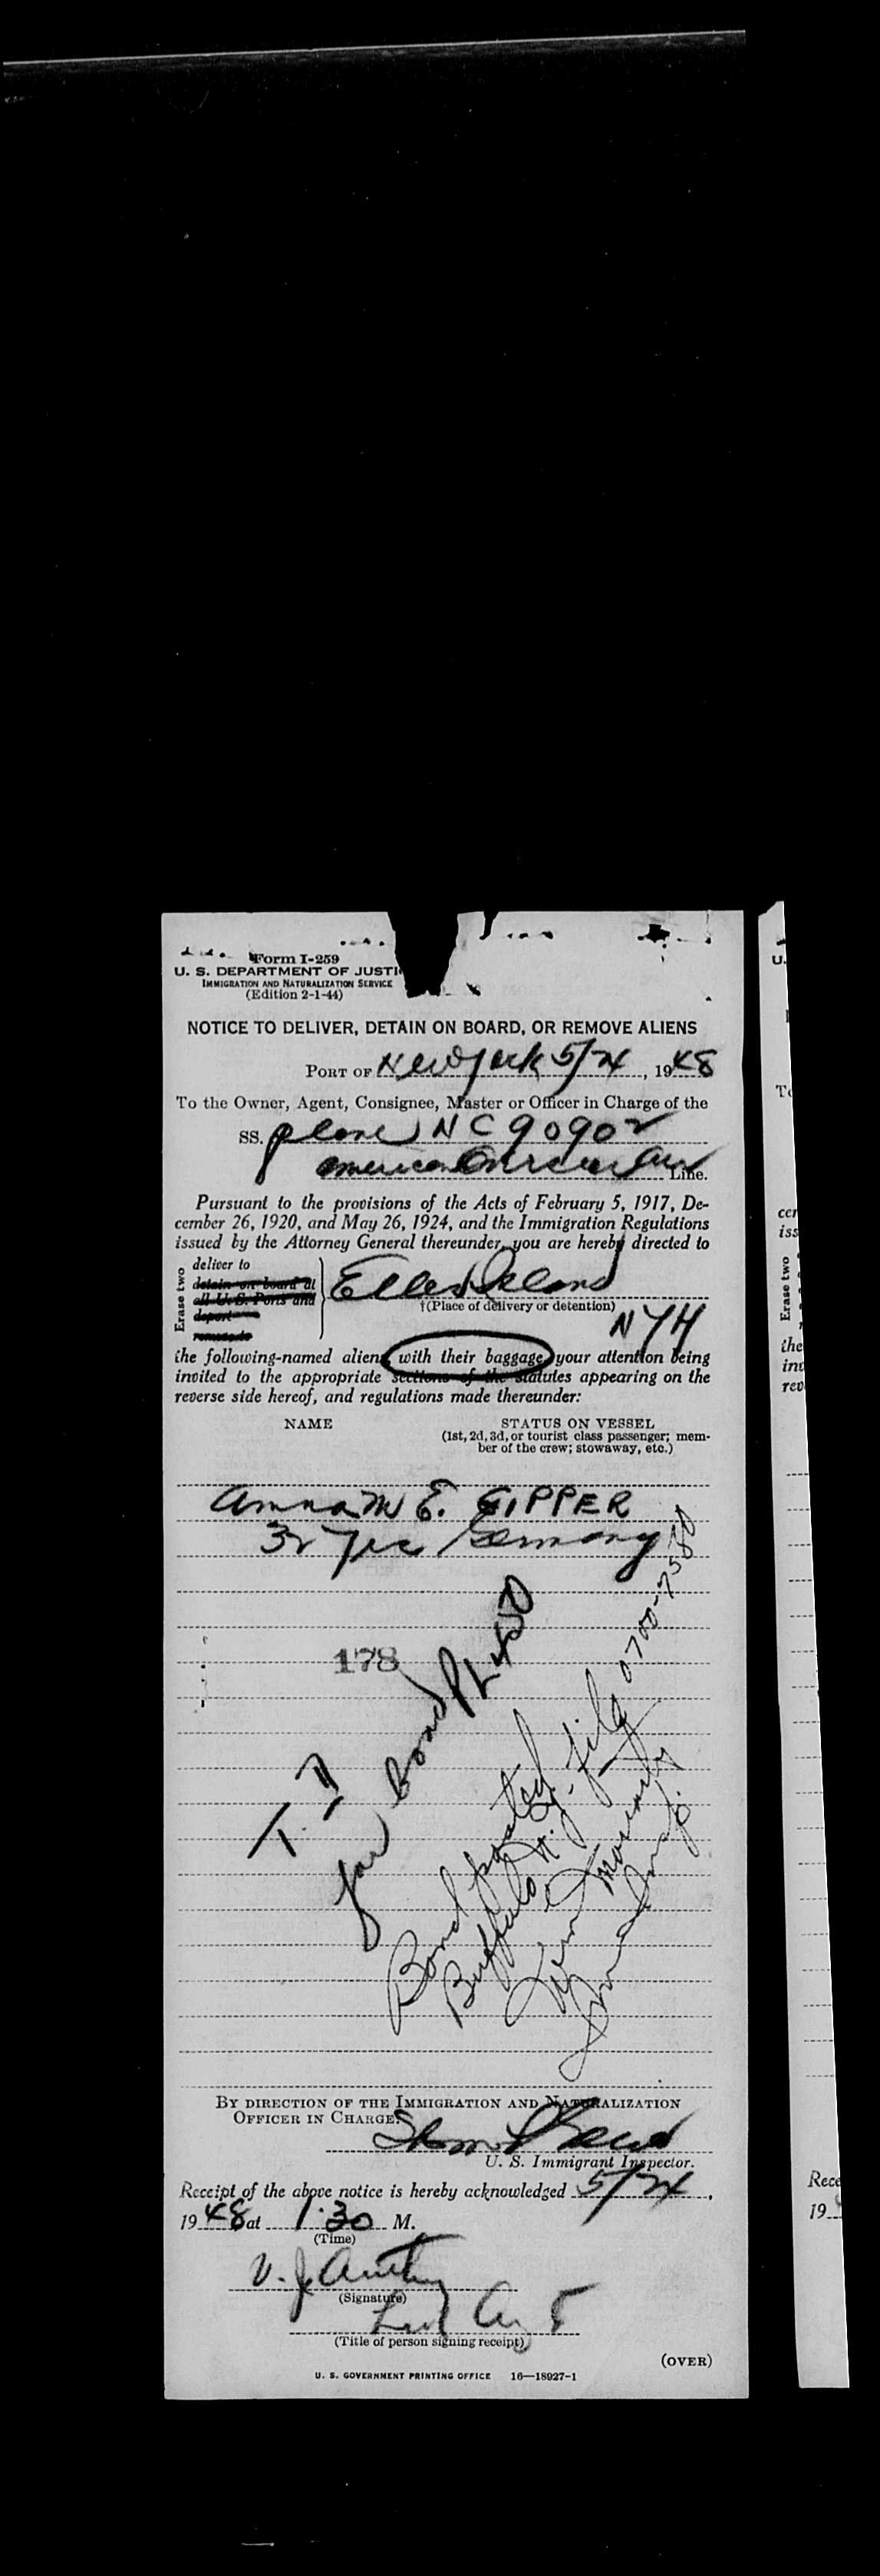 Form I-259
U. S. DEPARTMENT OF JUSTI
IMMIGRATION AND NATURALIZATION SERVICE
(Edition 2-1-44)
NOTICE TO DELIVER, DETAIN ON BOARD, OR REMOVE ALIENS
PORT OF New York 5/24, 1948
To the Owner, Agent, Consignee, Master or Officer in Charge of the
SS. plane NC 90902
American Overseas Air Line.
Pursuant to the provisions of the Acts of February 5, 1917, De-
cember 26, 1920, and May 26, 1924, and the Immigration Regulations
issued by the Attorney General thereunder, you are hereby directed to
Erase two
deliver to
detain on board at
all U. S. Ports and
deport
remove to
Ellis Island
†(Place of delivery or detention)
NYH
the following-named aliens with their baggage, your attention being
invited to the appropriate sections of the statutes appearing on the
reverse side hereof, and regulations made thereunder:
NAME STATUS ON VESSEL
(1st, 2d, 3d, or tourist class passenger; mem-
ber of the crew; stowaway, etc.)
Anna M E. GIPPER
32 yrs Germany
178
T. D
for bond
Bond posted
Buffalo N.Y. file 0700-
BY DIRECTION OF THE IMMIGRATION AND NATURALIZATION
OFFICER IN CHARGE:
U. S. Immigrant Inspector.
Receipt of the above notice is hereby acknowledged 5/24,
1948 at 1:30 M.
(Time)
V. J.
(Signature)
(Title of person signing receipt)
(OVER)
U. S. GOVERNMENT PRINTING OFFICE 16—18927-1
U.
To
cer
iss
Erase two
the
inv
rev
Rece
19